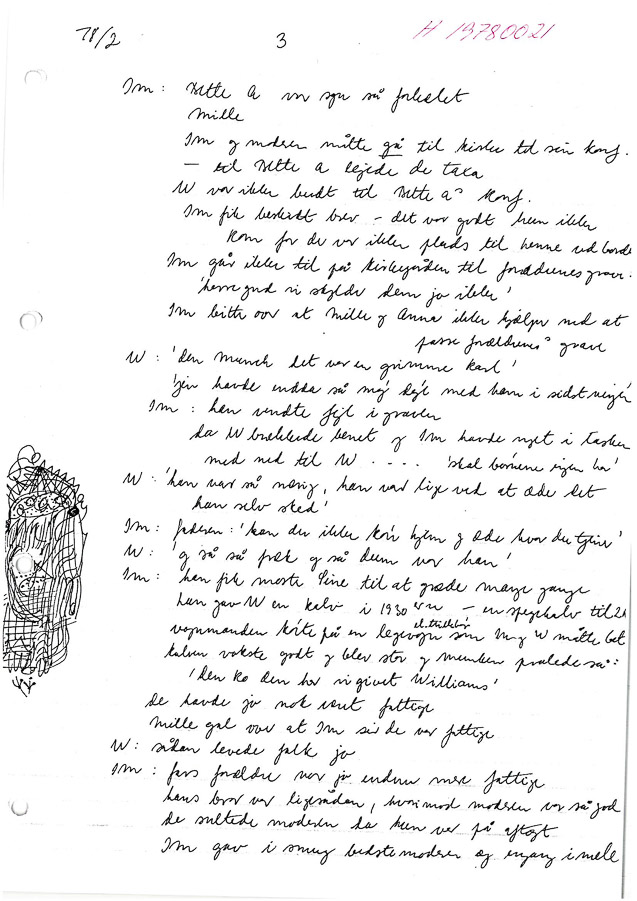 78/2
3
H 19780021
Im: Bitte A var så forelsket
Mille
Im og moderen måtte gå til kirke til sin konf.
– til Bitte A lejede de taxa
W var ikke budt til Bitte A's konf.
Im fik besked brev – det var godt hun ikke
kom for der var ikke plads til henne ved bordet
Im går ikke til på kirkegården til forældrenes grave:
'herregud vi skylder dem jo ikke'
Im bitte over at Mille og Anna ikke hjælper med at
passe forældrenes grave
W: 'den Munch det var en grimme karl'
havde endda så møj med ham i sidst
Im: han vendte fejl i graven
da W brækkede benet og Im havde noget i tasken
med ned til W .... 'skal børnene ha'
W: 'han var så nærig, han var lige ved at æde det
han selv sked'
Im: faderen: 'kan du ikke køre hjem og æde hvor du tjener'
W: 'og så så fræk og så dum var han'
Im: han fik moste Sine til at græde mange gange
han gav W en kalv i 1930'erne – en spegekalv til
vognmanden kørte på en som Im og W måtte bet
kalven voksede godt og blev stor og Munken pralede så:
'den ko den har vi givet Williams'
De havde jo nok været fattige
Mille gal over at Im sir de var fattige
W: sådan levede folk jo
Im: fars forældre var jo endnu mere fattige
hans bror var ligesådan, hvorimod moderen var så god
De sultede moderen da hun var på aftægt
Im gav i smug bedstemoderen og engang imele